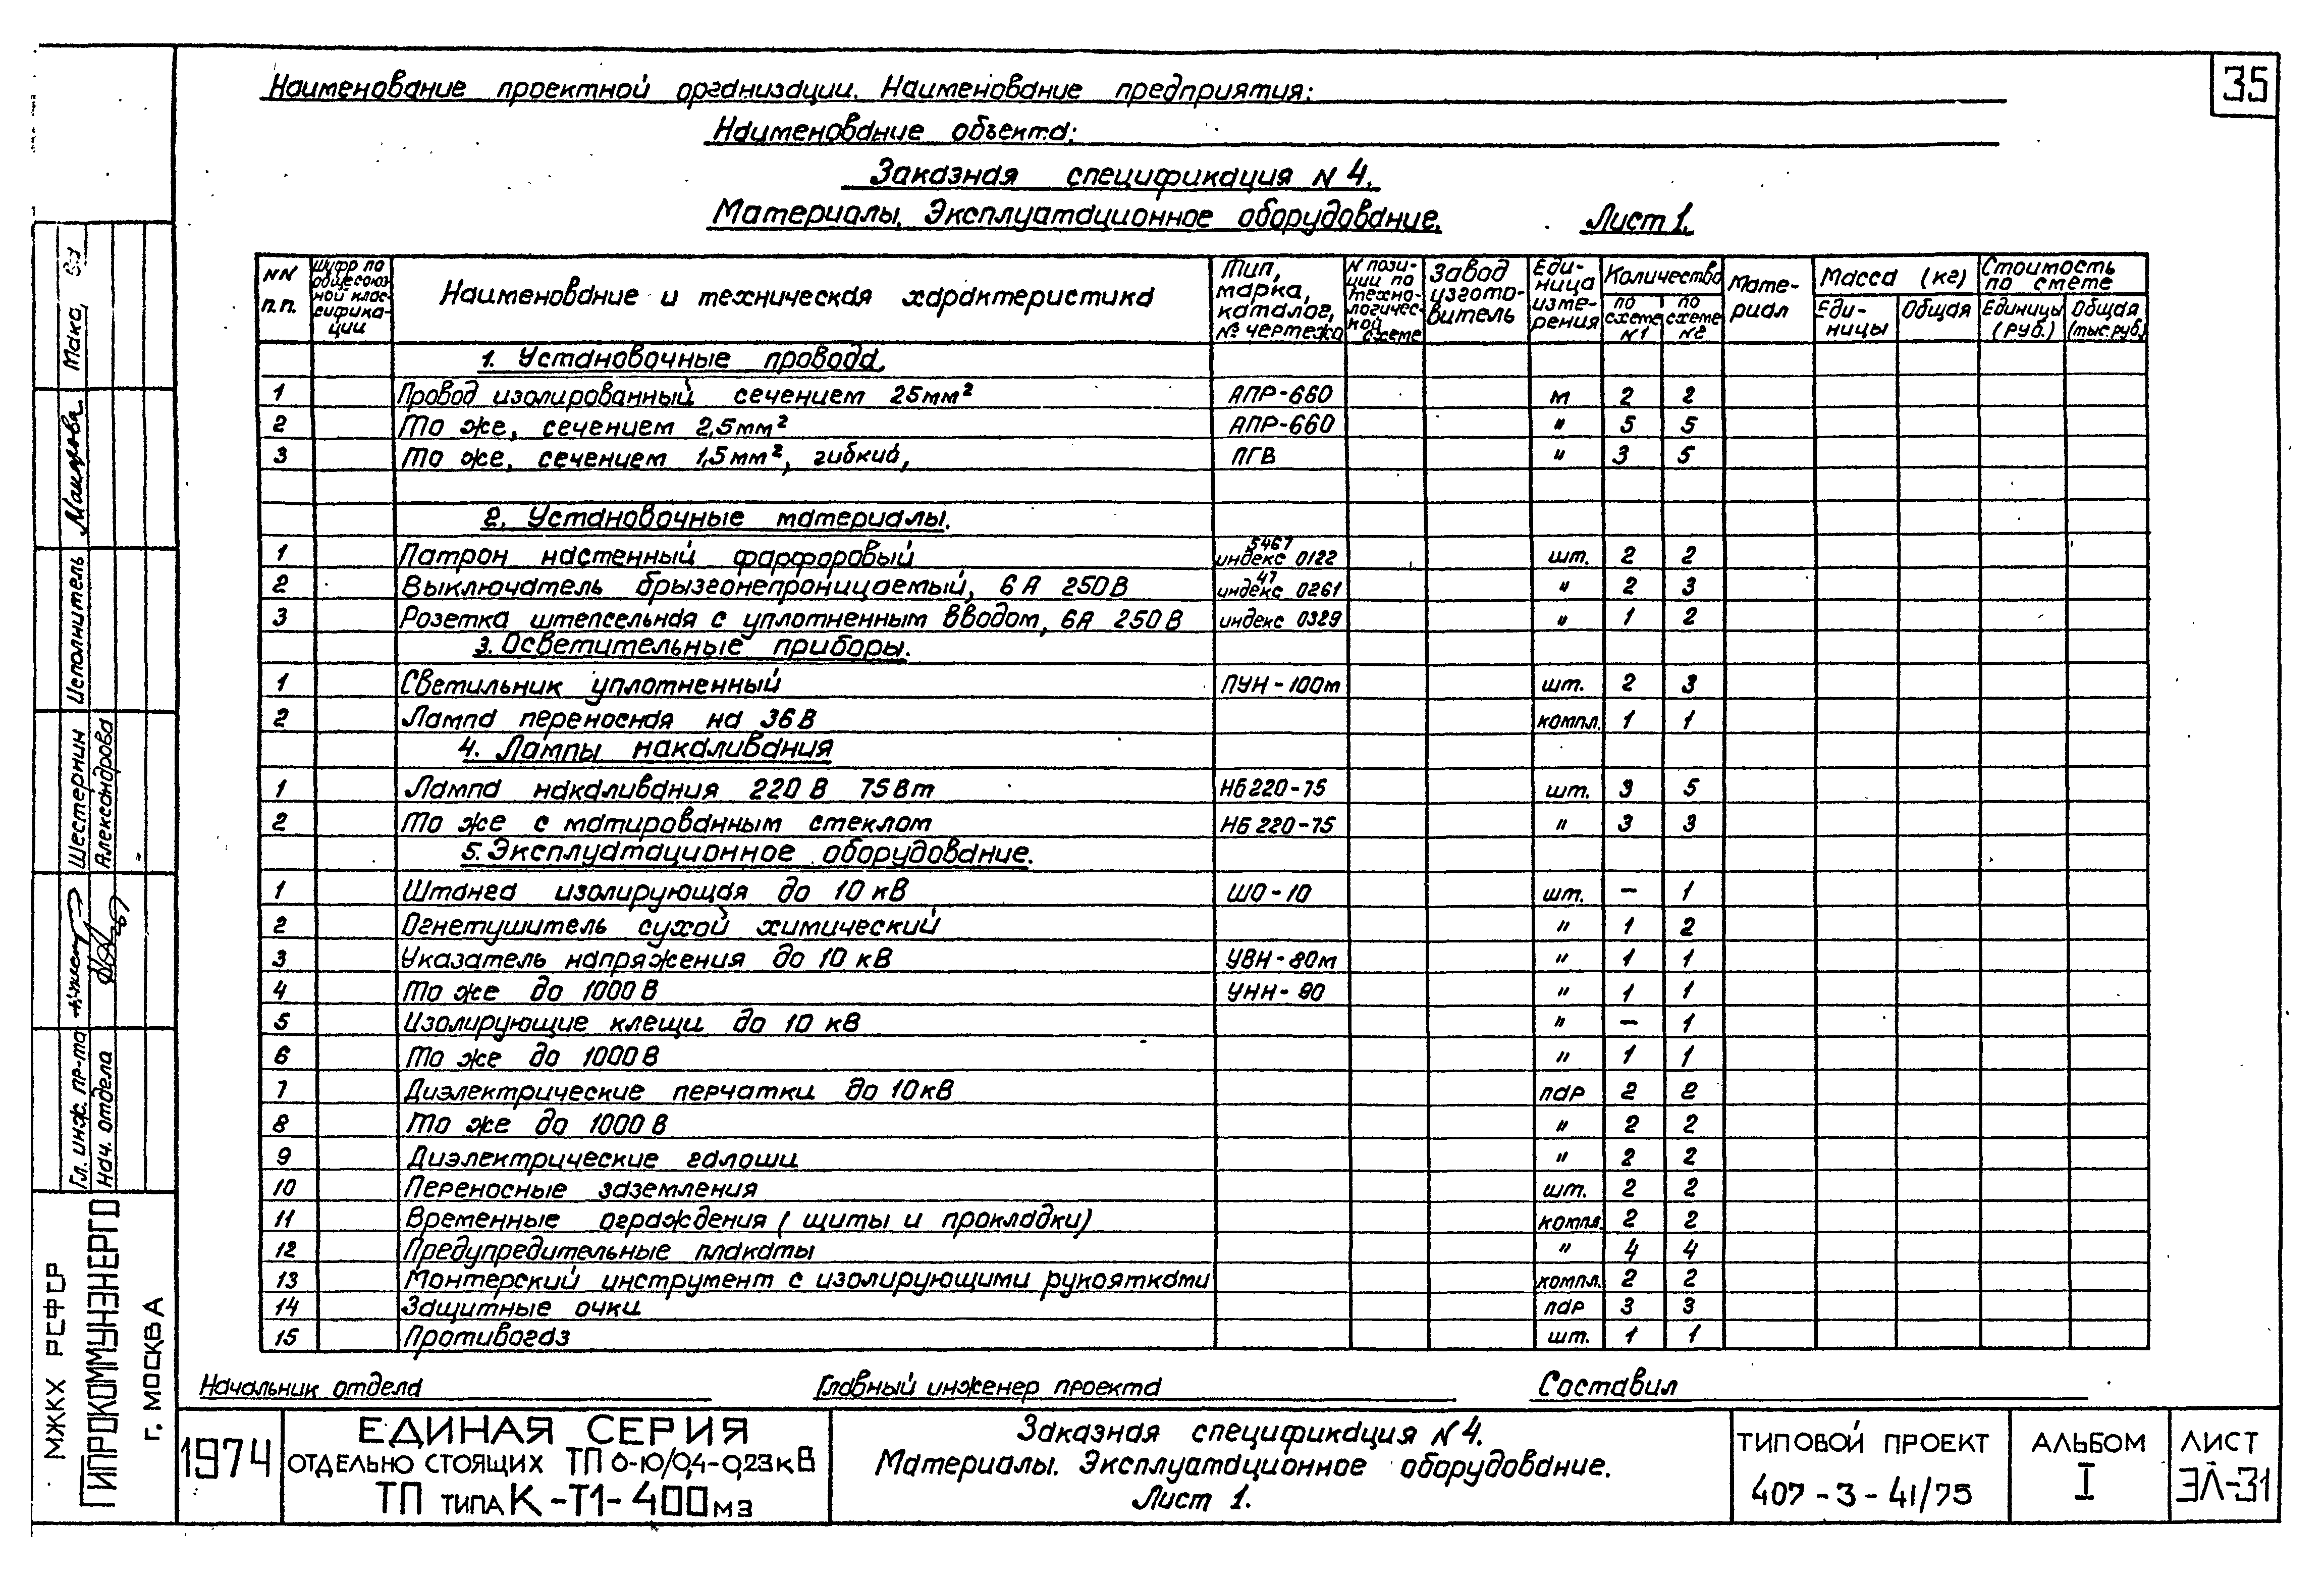 35
Наименование проектной организации. Наименование предприятия:
Наименование объекта:
Заказная спецификация N 4.
Материалы. Эксплуатационное оборудование. Лист 1.
NN п.п. Шифр по общесоюзной классификации Наименование и техническая характеристика Тип, марка, каталог, № чертежа N позиции по технологической схеме Завод изготовитель Единица измерения Количество по схеме N1 по схеме N2 Материал Масса (кг) Единицы Общая Стоимость по смете Единицы (руб.) Общая (тыс.руб.)
1. Установочные провода.
1 Провод изолированный сечением 25мм² АПР-660 м 2 2
2 То же, сечением 2,5мм² АПР-660 " 5 5
3 То же, сечением 1,5мм², гибкий, ПГВ " 3 5
2. Установочные материалы.
1 Патрон настенный фарфоровый 5467 индекс 0122 шт. 2 2
2 Выключатель брызгонепроницаемый, 6А 250В 47 индекс 0261 " 2 3
3 Розетка штепсельная с уплотненным вводом, 6А 250В индекс 0329 " 1 2
3. Осветительные приборы.
1 Светильник уплотненный ПУН-100м шт. 2 3
2 Лампа переносная на 36В компл. 1 1
4. Лампы накаливания
1 Лампа накаливания 220В 75Вт НБ220-75 шт. 3 5
2 То же с матированным стеклом НБ220-75 " 3 3
5. Эксплуатационное оборудование.
1 Штанга изолирующая до 10кВ ШО-10 шт. — 1
2 Огнетушитель сухой химический " 1 2
3 Указатель напряжения до 10кВ УВН-80м " 1 1
4 То же до 1000В УНН-90 " 1 1
5 Изолирующие клещи до 10кВ " — 1
6 То же до 1000В " 1 1
7 Диэлектрические перчатки до 10кВ пар 2 2
8 То же до 1000В " 2 2
9 Диэлектрические галоши " 2 2
10 Переносные заземления шт. 2 2
11 Временные ограждения (щиты и прокладки) компл. 2 2
12 Предупредительные плакаты " 4 4
13 Монтерский инструмент с изолирующими рукоятками компл. 2 2
14 Защитные очки пар 3 3
15 Противогаз шт. 1 1
Начальник отдела Главный инженер проекта Составил
1974
ЕДИНАЯ СЕРИЯ
ОТДЕЛЬНО СТОЯЩИХ ТП 6-10/0,4-0,23кВ
ТП ТИПА К-Т1-400мз
Заказная спецификация N4.
Материалы. Эксплуатационное оборудование.
Лист 1.
ТИПОВОЙ ПРОЕКТ
407-3-41/75
АЛЬБОМ
I
ЛИСТ
ЭЛ-31
МЖКХ РСФСР
ГИПРОКОММУНЭНЕРГО
Г. МОСКВА
Гл. инж. пр-та Шестернин Исполнитель
Нач. отдела Александрова